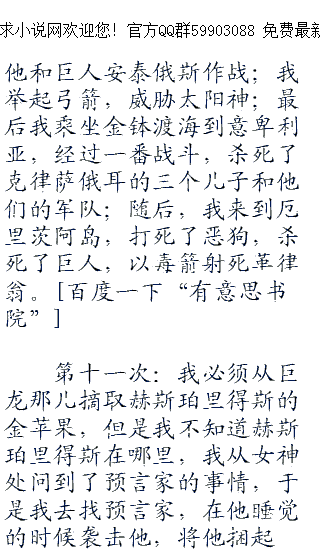 求小说网欢迎您! 官方QQ群59903088 免费最新
他和巨人安泰俄斯作战；我
举起弓箭，威胁太阳神；最
后我乘坐金钵渡海到意卑利
亚，经过一番战斗，杀死了
克律萨俄耳的三个儿子和他
们的军队；随后，我来到厄
里茨阿岛，打死了恶狗，杀
死了巨人，以毒箭射死革律
翁。[百度一下“有意思书
院”]
第十一次：我必须从巨
龙那儿摘取赫斯珀里得斯的
金苹果，但是我不知道赫斯
珀里得斯在哪里，我从女神
处问到了预言家的事情，于
是我去找预言家，在他睡觉
的时候袭击他，将他捆起